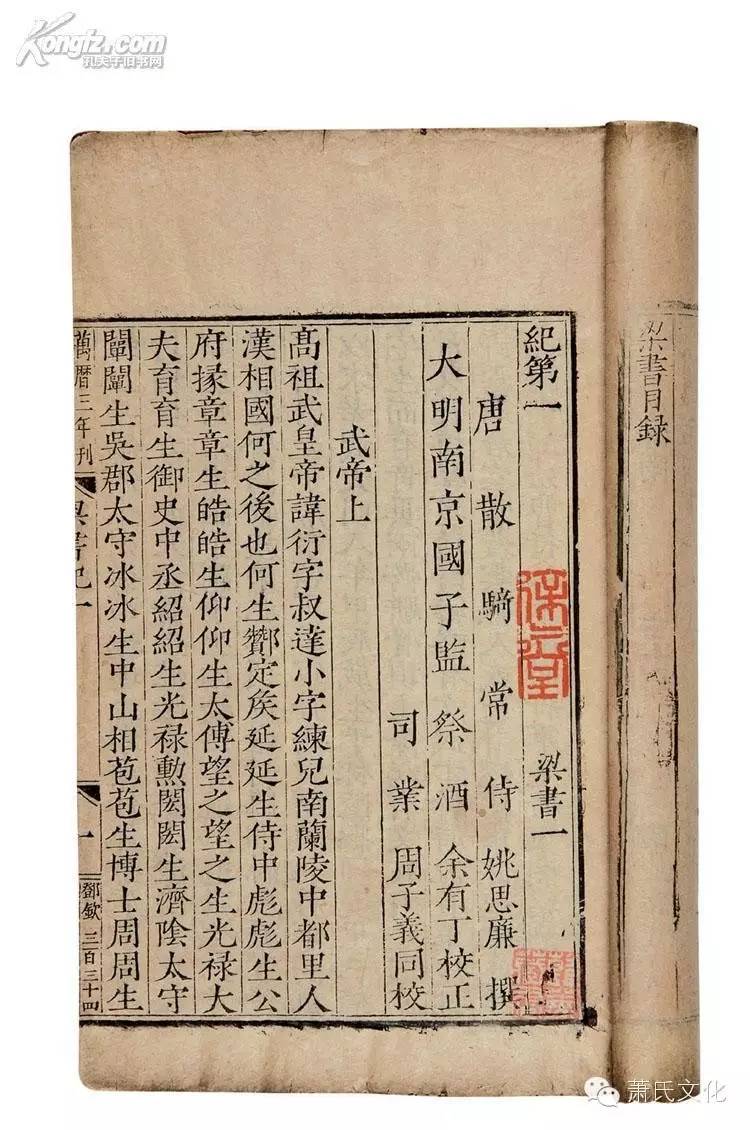 Kongfz.com
孔夫子旧书网
梁書目録
紀第一 梁書一
唐散騎常侍姚思廉撰
大明南京國子監祭酒余有丁校正
司業周子義同校
武帝上
髙祖武皇帝諱衍字叔達小字練兒南蘭陵中都里人
漢相國何之後也何生酇定矦延延生侍中彪彪生公
府掾章章生皓皓生仰仰生太傅望之望之生光禄大
夫育育生御史中丞紹紹生光禄勲閎閎生濟陰太守
闡闡生吳郡太守冰冰生中山相苞苞生博士周周生
萬曆三年刊 梁書紀一 一 鄧欽 三百三十四
萧氏文化